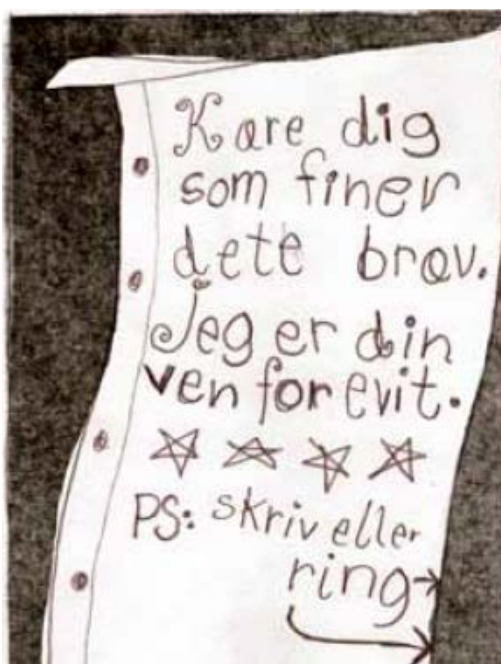 Kare dig
som finer
dete brav.
Jeg er din
ven for evit.
PS: skriv eller
ring